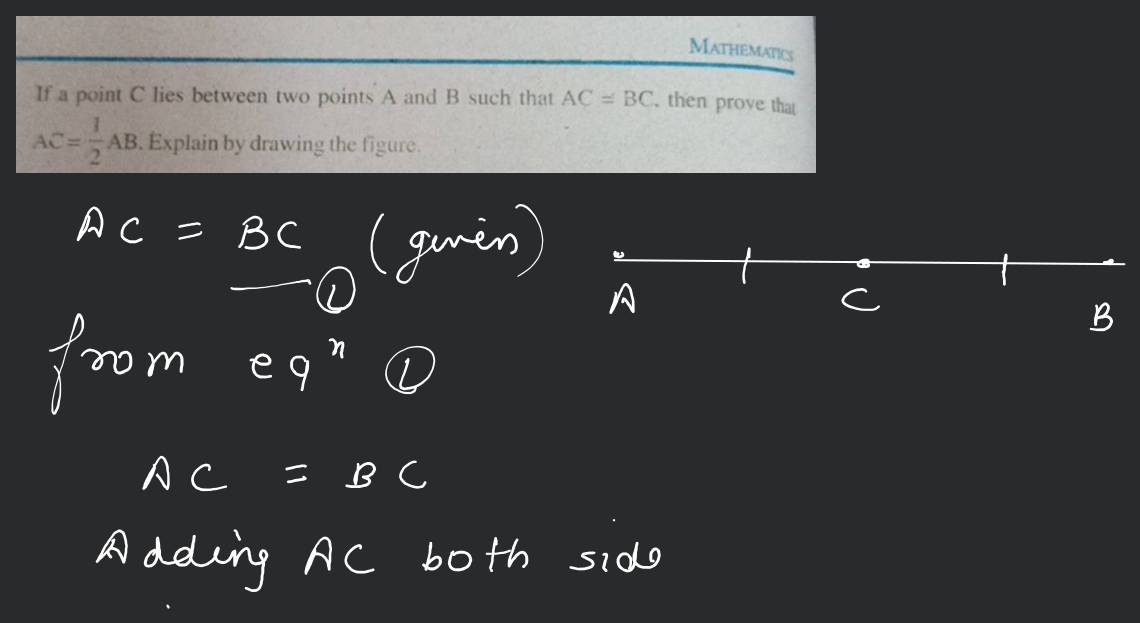 MATHEMATICS
If a point C lies between two points A and B such that AC = BC, then prove that
AC = 1/2 AB. Explain by drawing the figure.
AC = BC (given)
①
A C B
from eqⁿ ①
AC = BC
Adding AC both side